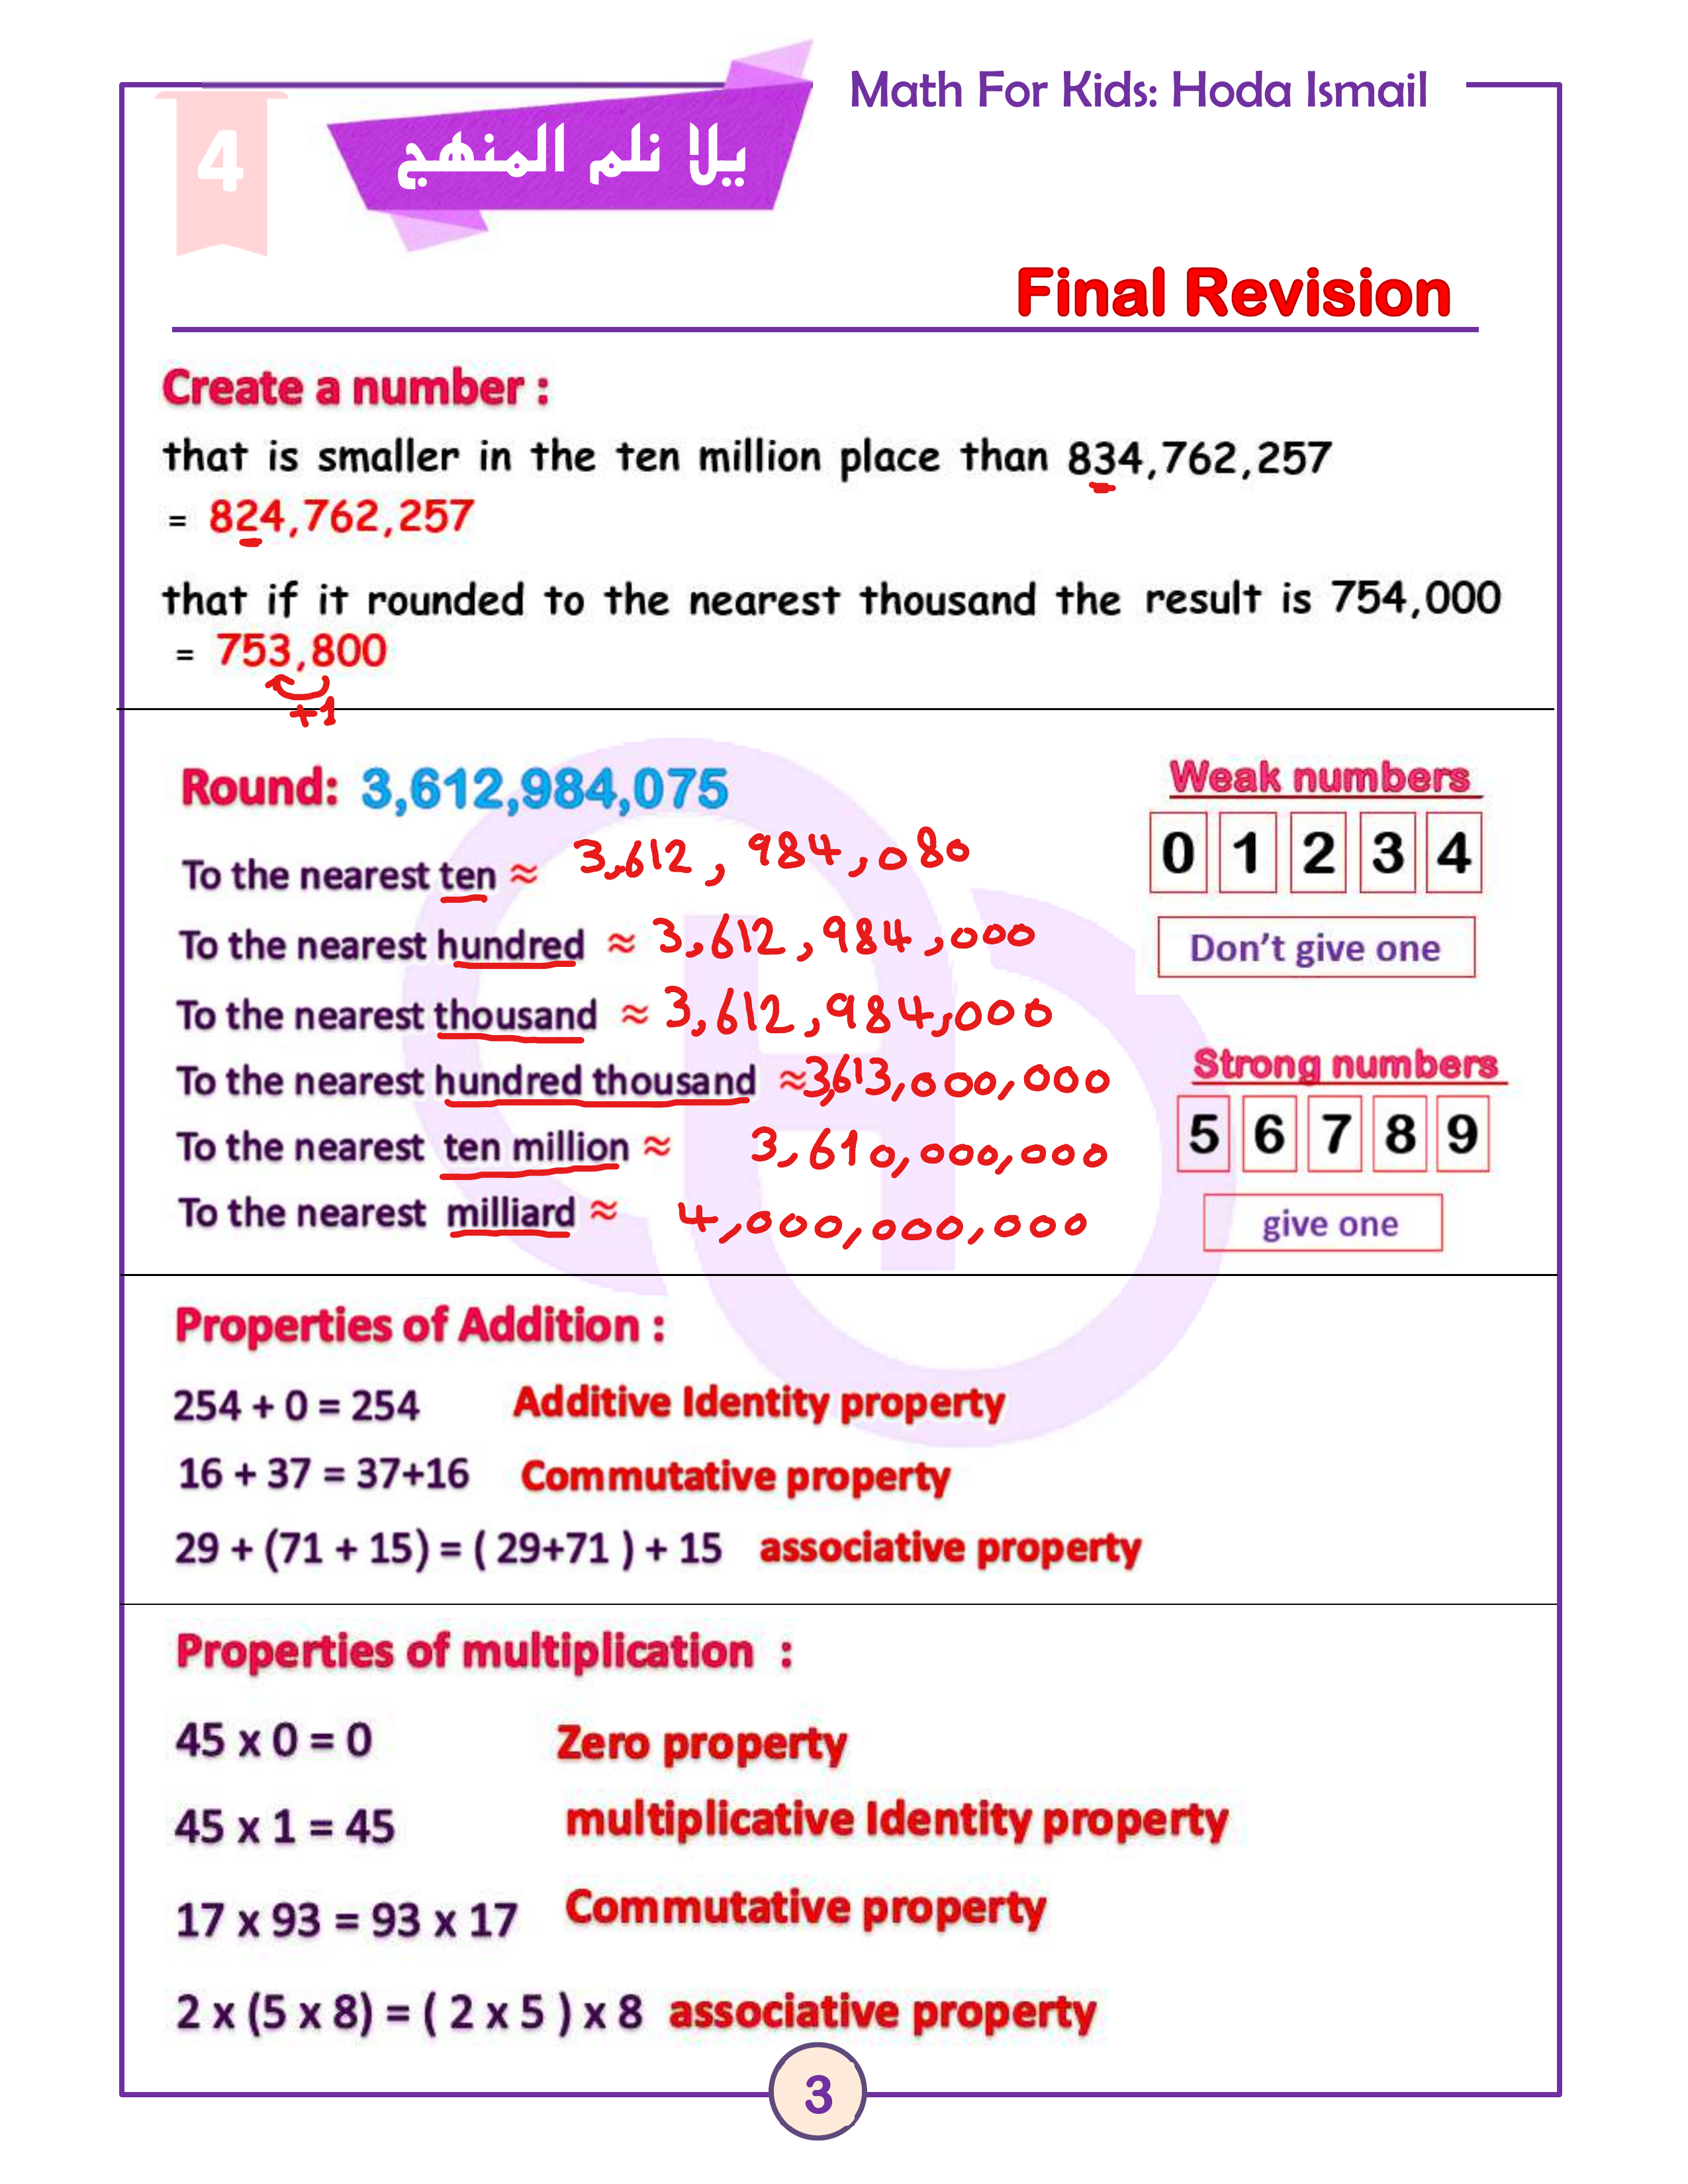 Math For Kids: Hoda Ismail
4
يلا نلم المنهج
Final Revision
Create a number :
that is smaller in the ten million place than 834,762,257
= 824,762,257
that if it rounded to the nearest thousand the result is 754,000
= 753,800
+1
Round: 3,612,984,075
To the nearest ten ≈ 3,612, 984,080
To the nearest hundred ≈ 3,612,984,000
To the nearest thousand ≈ 3,612,984,000
To the nearest hundred thousand ≈3,613,000,000
To the nearest ten million ≈ 3,610,000,000
To the nearest milliard ≈ 4,000,000,000
Weak numbers
0 1 2 3 4
Don't give one
Strong numbers
5 6 7 8 9
give one
Properties of Addition :
254 + 0 = 254 Additive Identity property
16 + 37 = 37+16 Commutative property
29 + (71 + 15) = ( 29+71 ) + 15 associative property
Properties of multiplication :
45 x 0 = 0 Zero property
45 x 1 = 45 multiplicative Identity property
17 x 93 = 93 x 17 Commutative property
2 x (5 x 8) = ( 2 x 5 ) x 8 associative property
3